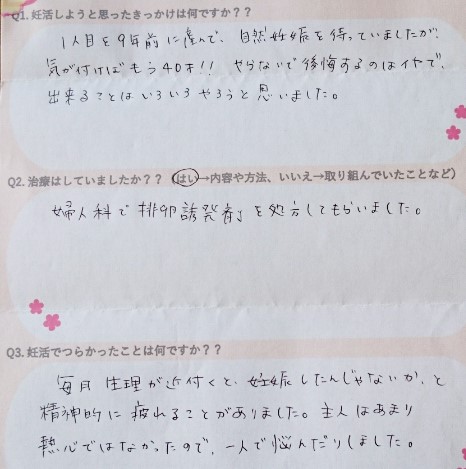 Q1.妊活しようと思ったきっかけは何ですか？？
1人目を9年前に産んで、自然妊娠を待っていましたが、
気が付けばもう40才!! やらないで後悔するのはイヤで、
出来ることはいろいろやろうと思いました。
Q2.治療はしていましたか？？（はい→内容や方法、いいえ→取り組んでいたことなど）
婦人科で排卵誘発剤を処方してもらいました。
Q3.妊活でつらかったことは何ですか？？
毎月生理が近付くと、妊娠したんじゃないか、と
精神的に疲れることがありました。主人はあまり
熱心ではなかったので、一人で悩んだりしました。